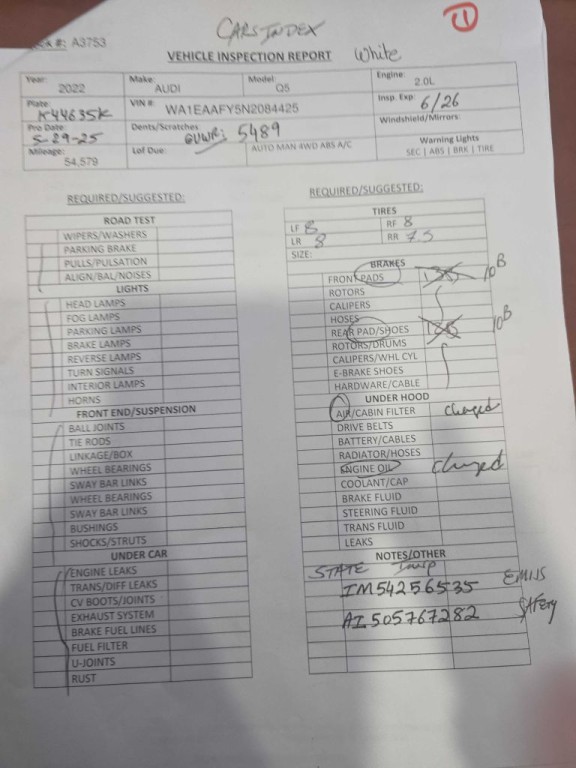 CARS INDEX
#: A3753
VEHICLE INSPECTION REPORT White
Year: 2022 Make: AUDI Model: Q5 Engine: 2.0L
Plate: K44635K VIN #: WA1EAAFY5N2084425 Insp. Exp: 6/26
Pro Date: 5-29-25 Dents/Scratches: GVWR: 5489 Windshield/Mirrors:
Mileage: 54,579 Lof Due: AUTO MAN 4WD ABS A/C Warning Lights
SEC | ABS | BRK | TIRE
REQUIRED/SUGGESTED:
ROAD TEST
WIPERS/WASHERS
PARKING BRAKE
PULLS/PULSATION
ALIGN/BAL/NOISES
LIGHTS
HEAD LAMPS
FOG LAMPS
PARKING LAMPS
BRAKE LAMPS
REVERSE LAMPS
TURN SIGNALS
INTERIOR LAMPS
HORNS
FRONT END/SUSPENSION
BALL JOINTS
TIE RODS
LINKAGE/BOX
WHEEL BEARINGS
SWAY BAR LINKS
WHEEL BEARINGS
SWAY BAR LINKS
BUSHINGS
SHOCKS/STRUTS
UNDER CAR
ENGINE LEAKS
TRANS/DIFF LEAKS
CV BOOTS/JOINTS
EXHAUST SYSTEM
BRAKE FUEL LINES
FUEL FILTER
U-JOINTS
RUST
REQUIRED/SUGGESTED:
TIRES
LF 8 RF 8
LR 8 RR 7.5
SIZE:
BRAKES
FRONT PADS 10B
ROTORS
CALIPERS
HOSES
REAR PAD/SHOES 10B
ROTORS/DRUMS
CALIPERS/WHL CYL
E-BRAKE SHOES
HARDWARE/CABLE
UNDER HOOD
AIR/CABIN FILTER changed
DRIVE BELTS
BATTERY/CABLES
RADIATOR/HOSES
ENGINE OIL changed
COOLANT/CAP
BRAKE FLUID
STEERING FLUID
TRANS FLUID
LEAKS
NOTES/OTHER
STATE Insp
IM54256535 EMISS
AI505767282 SAFETY